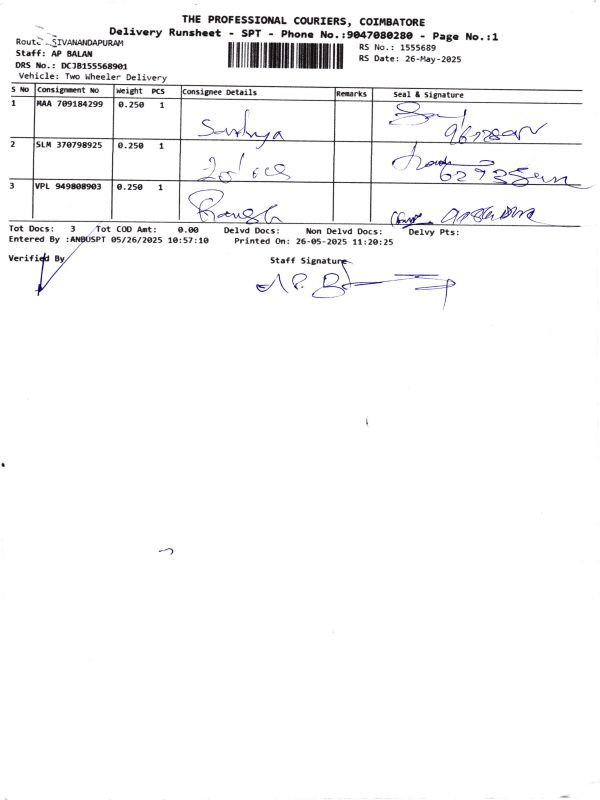 THE PROFESSIONAL COURIERS, COIMBATORE
Delivery Runsheet - SPT - Phone No.:9047080280 - Page No.:1
Route: SIVANANDAPURAM
RS No.: 1555689
Staff: AP BALAN
RS Date: 26-May-2025
DRS No.: DCJB155568901
Vehicle: Two Wheeler Delivery
S No Consignment No Weight PCS Consignee Details Remarks Seal & Signature
1 MAA 709184299 0.250 1
Sathya
2 SLM 370798925 0.250 1
3 VPL 949808903 0.250 1
Tot Docs: 3 Tot COD Amt: 0.00 Delvd Docs: Non Delvd Docs: Delvy Pts:
Entered By :ANBUSPT 05/26/2025 10:57:10 Printed On: 26-05-2025 11:20:25
Verified By Staff Signature